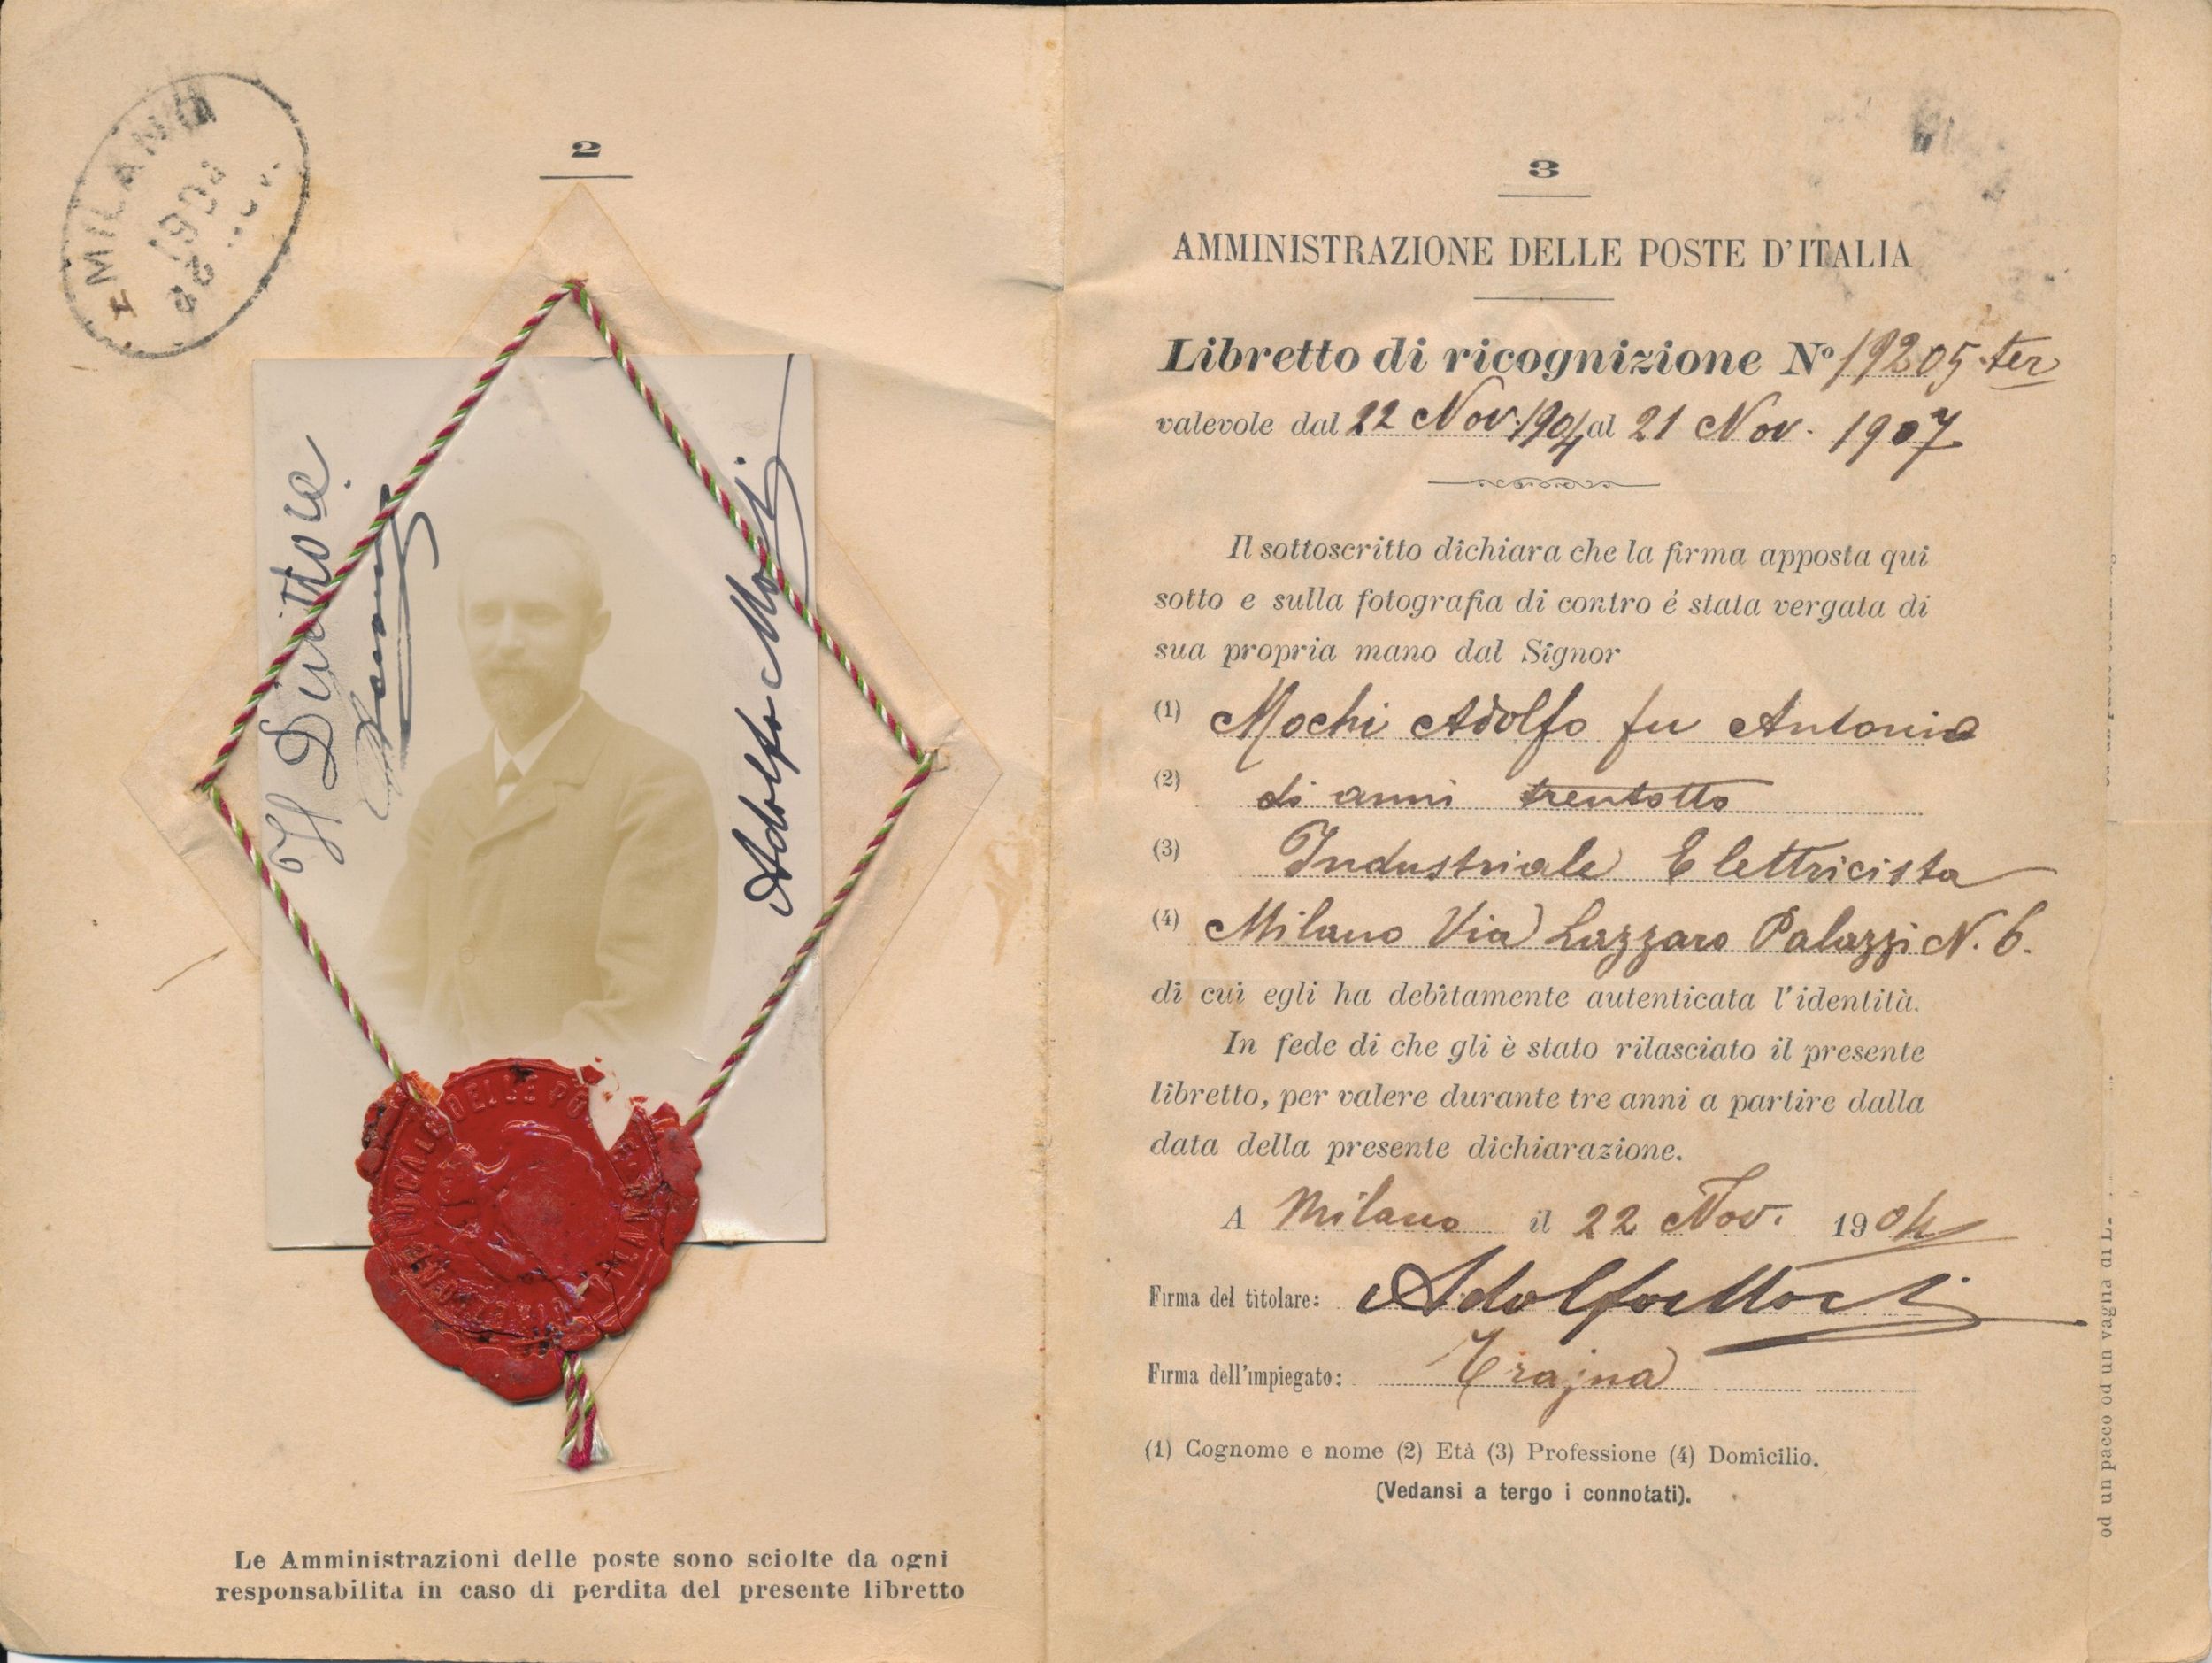 MILANO
2
Il Direttore
Adolfo Mochi
DELLE PO
MILANO
Le Amministrazioni delle poste sono sciolte da ogni
responsabilità in caso di perdita del presente libretto
3
AMMINISTRAZIONE DELLE POSTE D'ITALIA
Libretto di ricognizione Nº 19205 ter
valevole dal 22 Nov. 1904 al 21 Nov. 1907
Il sottoscritto dichiara che la firma apposta qui
sotto e sulla fotografia di contro é stata vergata di
sua propria mano dal Signor
(1) Mochi Adolfo fu Antonio
(2) di anni trentotto
(3) Industriale Elettricista
(4) Milano Via Lazzaro Palazzi N. 6.
di cui egli ha debitamente autenticata l'identità.
In fede di che gli è stato rilasciato il presente
libretto, per valere durante tre anni a partire dalla
data della presente dichiarazione.
A Milano il 22 Nov. 1904
Firma del titolare: Adolfo Mochi
Firma dell'impiegato: Trajna
(1) Cognome e nome (2) Età (3) Professione (4) Domicilio.
(Vedansi a tergo i connotati).
od un pacco od un vaglia di L.